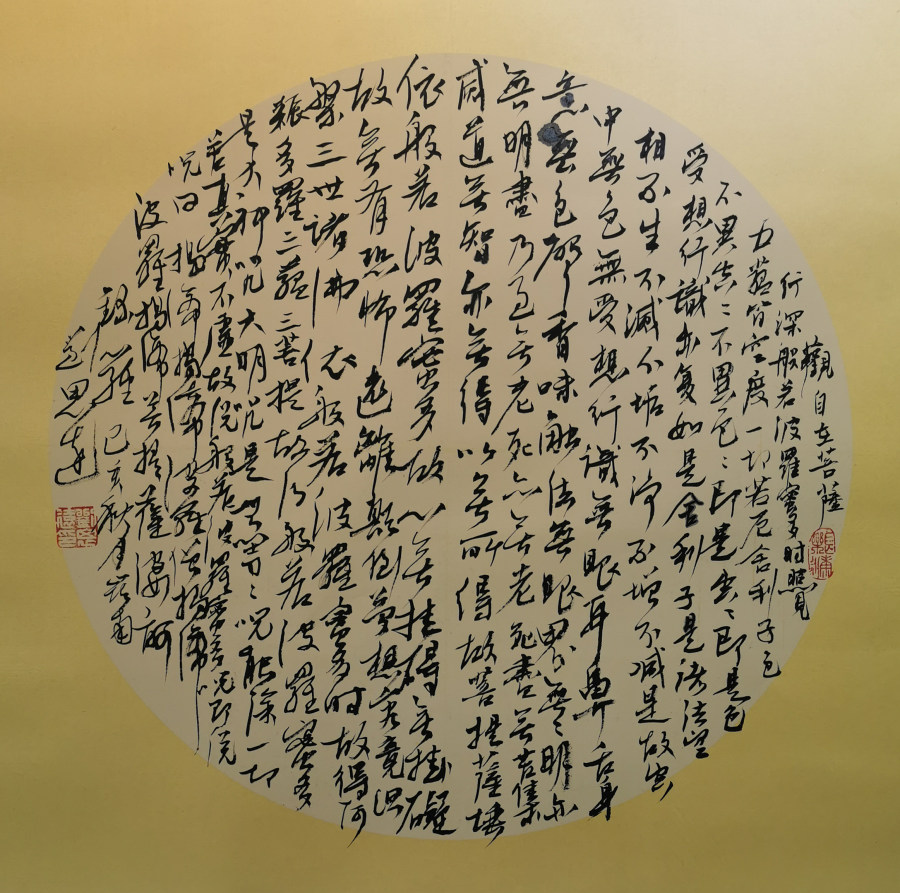 觀自在菩薩
行深般若波羅蜜多時照見
五蘊皆空度一切苦厄舍利子色
不異空〻不異色〻即是空〻即是色
受想行識亦復如是舍利子是諸法空
相不生不滅不垢不淨不增不減是故空
中無色無受想行識無眼耳鼻舌身
意無色聲香味觸法無眼界無〻明亦
無明盡乃至無老死亦無老死盡無苦集
滅道無智亦無得以無所得故菩提薩埵
依般若波羅蜜多故心無挂礙無掛礙
故無有恐怖遠離顛倒夢想究竟涅
槃三世諸佛依般若波羅蜜多時故得阿
耨多羅三藐三菩提故知般若波羅蜜多
是大神咒大明咒是無等〻咒能除一切
苦真實不虛故說般若波羅蜜多咒即說
呪曰揭帝揭帝波羅僧揭帝
波羅揭帝菩提薩婆訶
錄心經己亥秋月
思遠